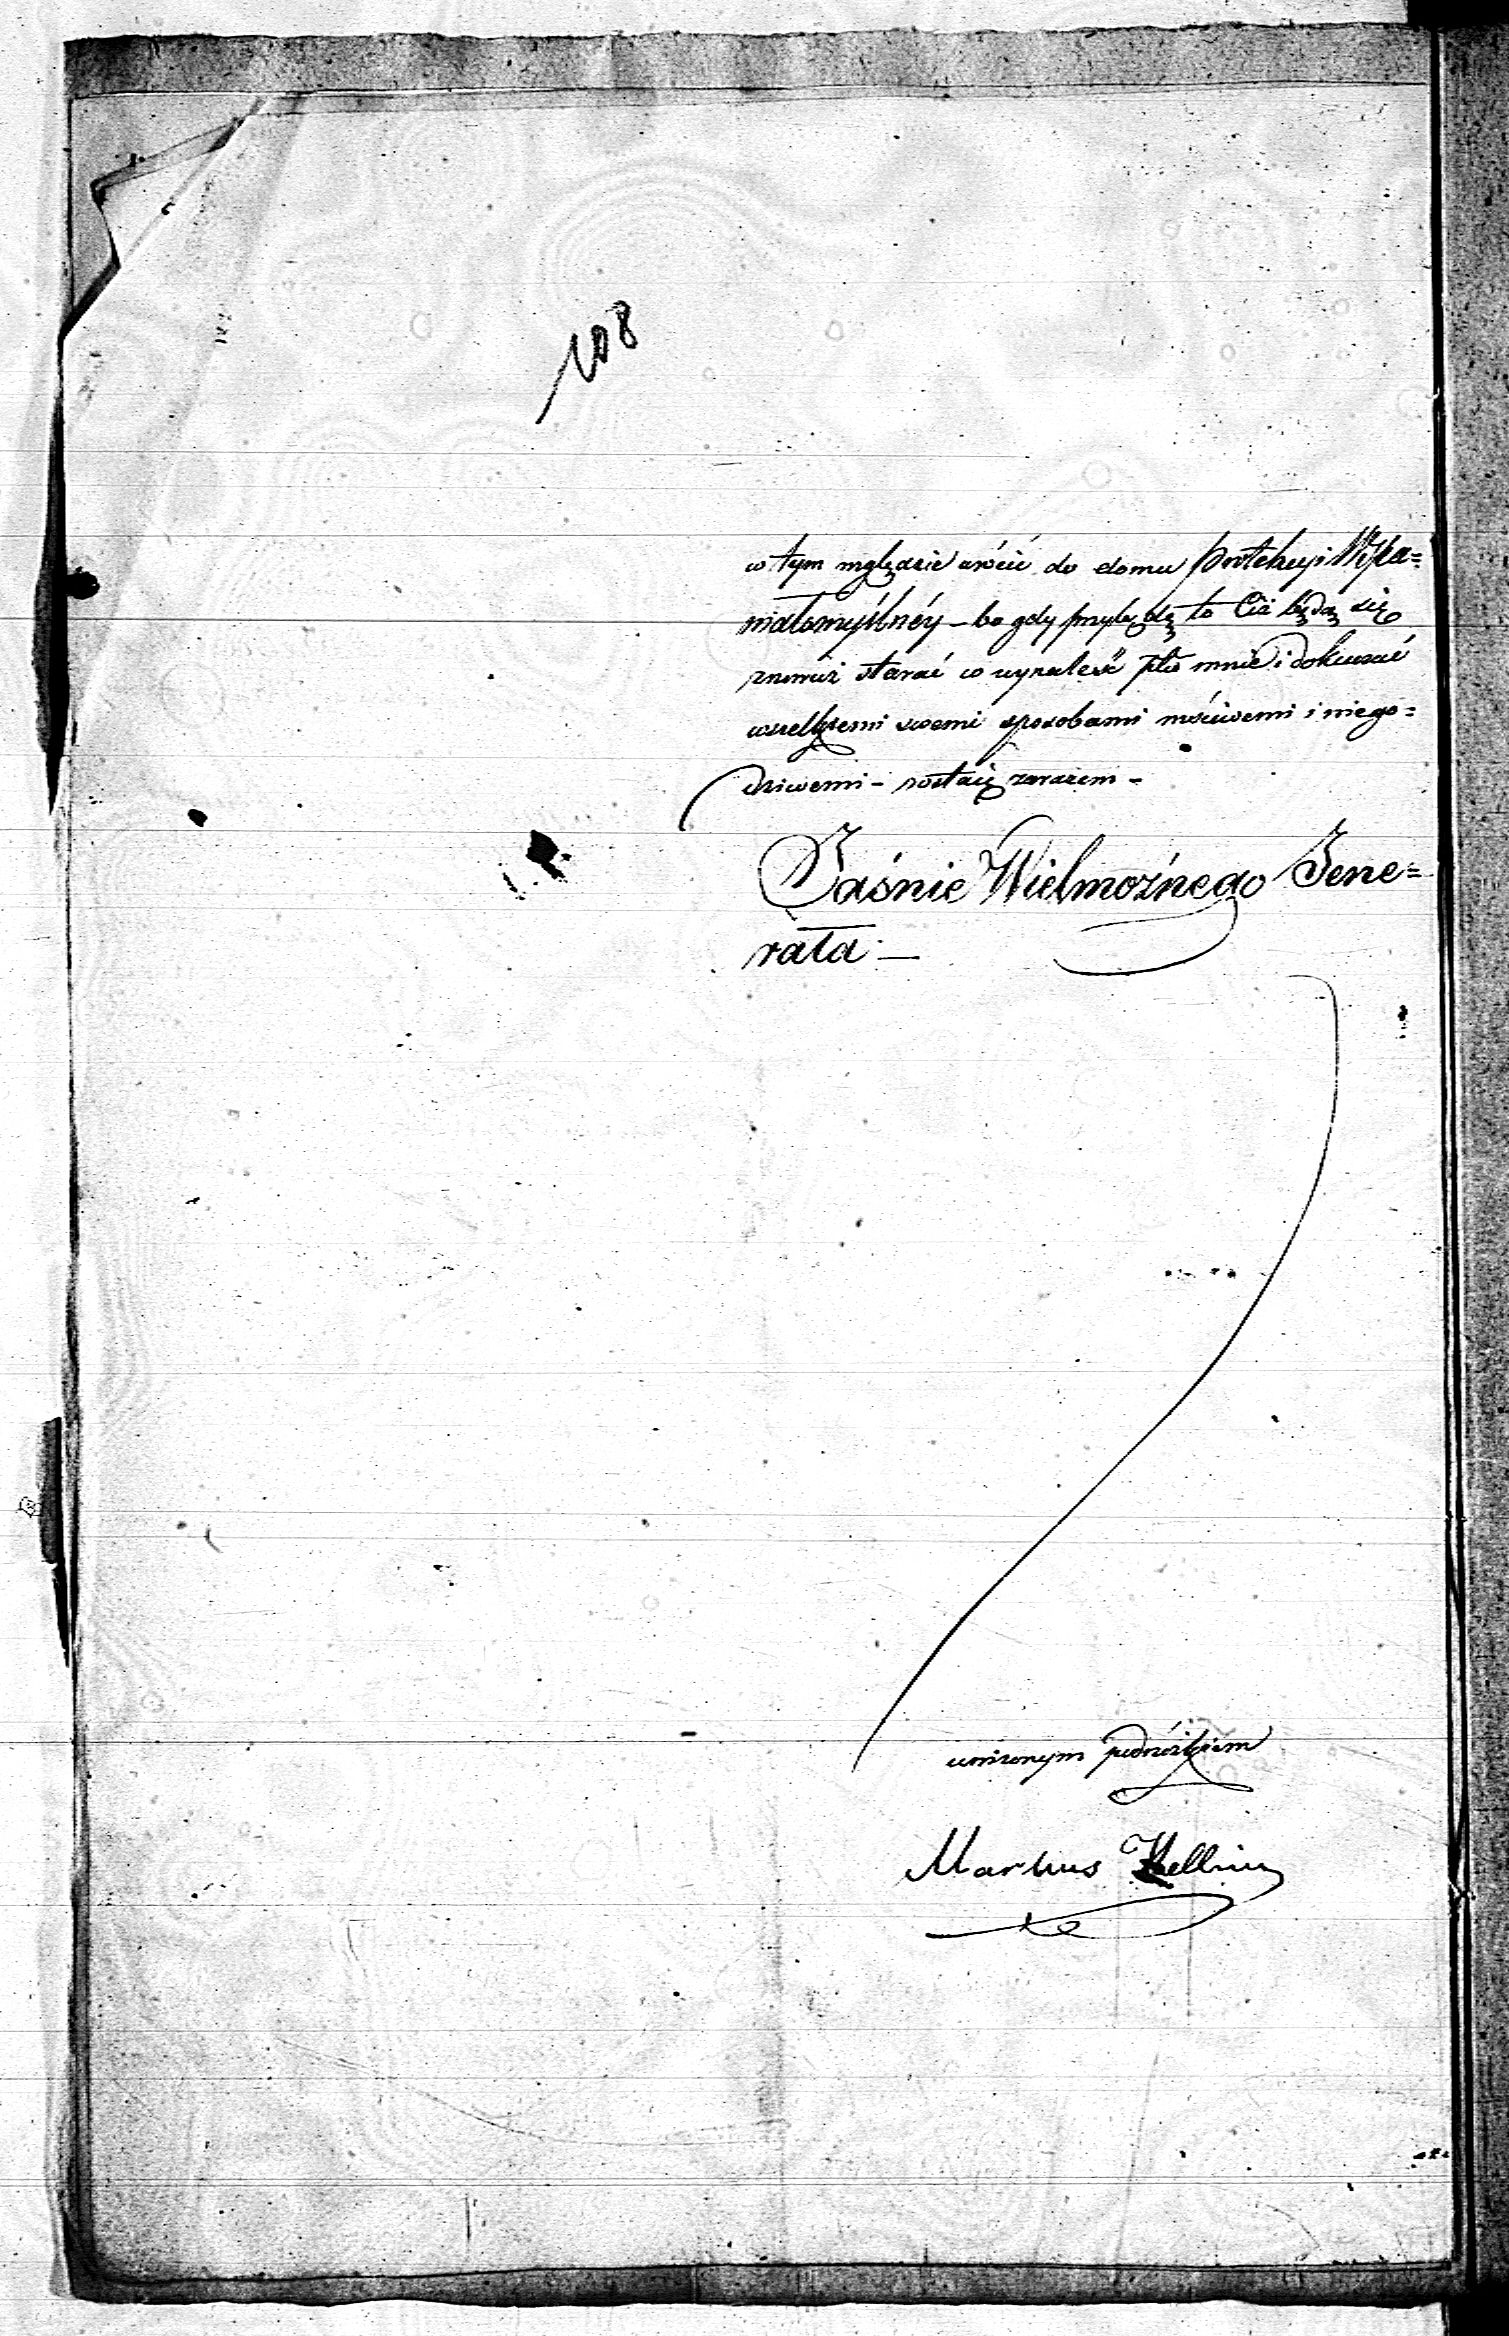 108
w tym względzie wrócić do domu Protekcyi Wspa=
niałomyślnéy – bo gdy przybędę to Ciż będą się
znowuż starać w wynaleść na mnie i dokuczać
wszelkiemi swemi sposobami mściwemi i niego=
dziwemi – zostaię zarazem –
Jaśnie Wielmożnego Jene=
rała –
uniżonym podnóżkiem
Markus